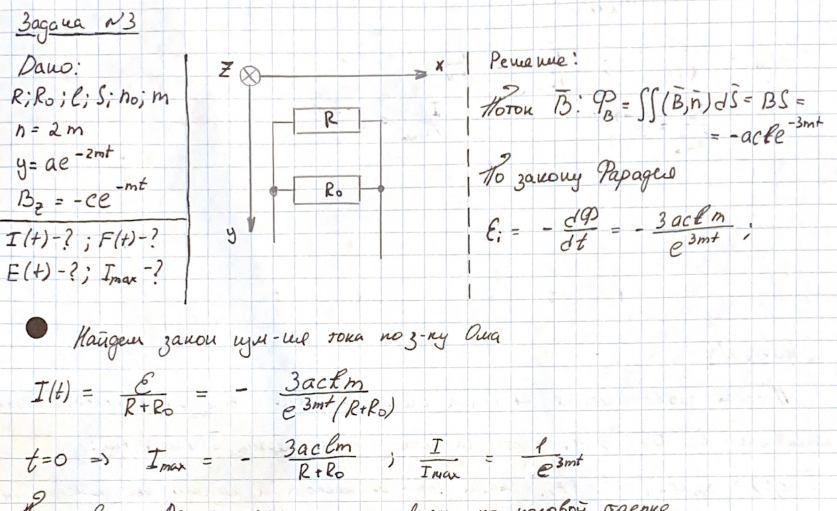 Задача №3
Дано:
R; R₀; l; S; n₀; m
n = 2m
y = ae^{-2mt}
B_z = -ce^{-mt}
I(t)-?; F(t)-?
E(t)-?; I_max-?
Z x
R
R₀
y
Решение:
Поток B̄: Φ_B = ∬(B̄,n̄)dS̄ = BS =
= -acle^{-3mt}
По закону Фарадея
ℰ_i = - dΦ/dt = - 3aclm/e^{3mt};
Найдем закон изм-ия тока по з-ну Ома
I(t) = ℰ/(R+R₀) = - 3aclm/(e^{3mt}(R+R₀))
t=0 => I_max = - 3aclm/(R+R₀); I/I_max = 1/e^{3mt}
по часовой стрелке